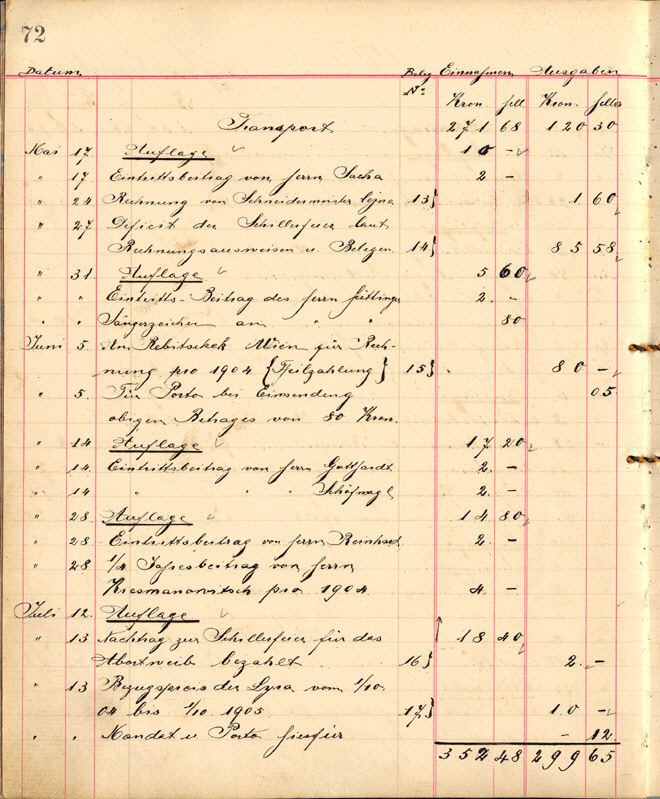 72
Datum Beleg Einnahmen Ausgaben
No. Kron. hell Kron. heller
Transport 271 68 120 30
Mai 17 Auflage 10 -
" 17 Eintrittsbeitrag von Herrn Sacha 2 -
" 24 Rechnung von Schneidermeister 13} 1 60
" 27 Deficit der Schillerfeier laut
Rechnungsausweisen u. Belegen 14} 85 58
" 31. Auflage 5 60
" " Eintritts-Beitrag des Herrn 2. -
" " Sängerzeichen an " " 80
Juni 5. An Rebitschek Wien für Rech-
nung pro 1904 {Theilzahlung} 15} 80 -
" 5. Für Porto bei Einsendung 05
obigen Betrages von 80 Kron.
" 14 Auflage 17 20
" 14. Eintrittsbeitrag von Herrn Gotthardt 2. -
" 14 " " " 2. -
" 28 Auflage 14 80
" 28 Eintrittsbeitrag von Herrn Reinhard 2. -
" 28 1/4 Jahresbeitrag von Herrn
pro 1904 4. -
Juli 12. Auflage
" 13 Nachtrag zur Schillerfeier für das 18 40
Abortweib bezahlt 16} 2. -
" 13 Bezugspreis der Lyra vom 1/10
04 bis 1/10 1905 17} 10 -
" " Mandat u. Porto hiefür - 12
352 48 299 65